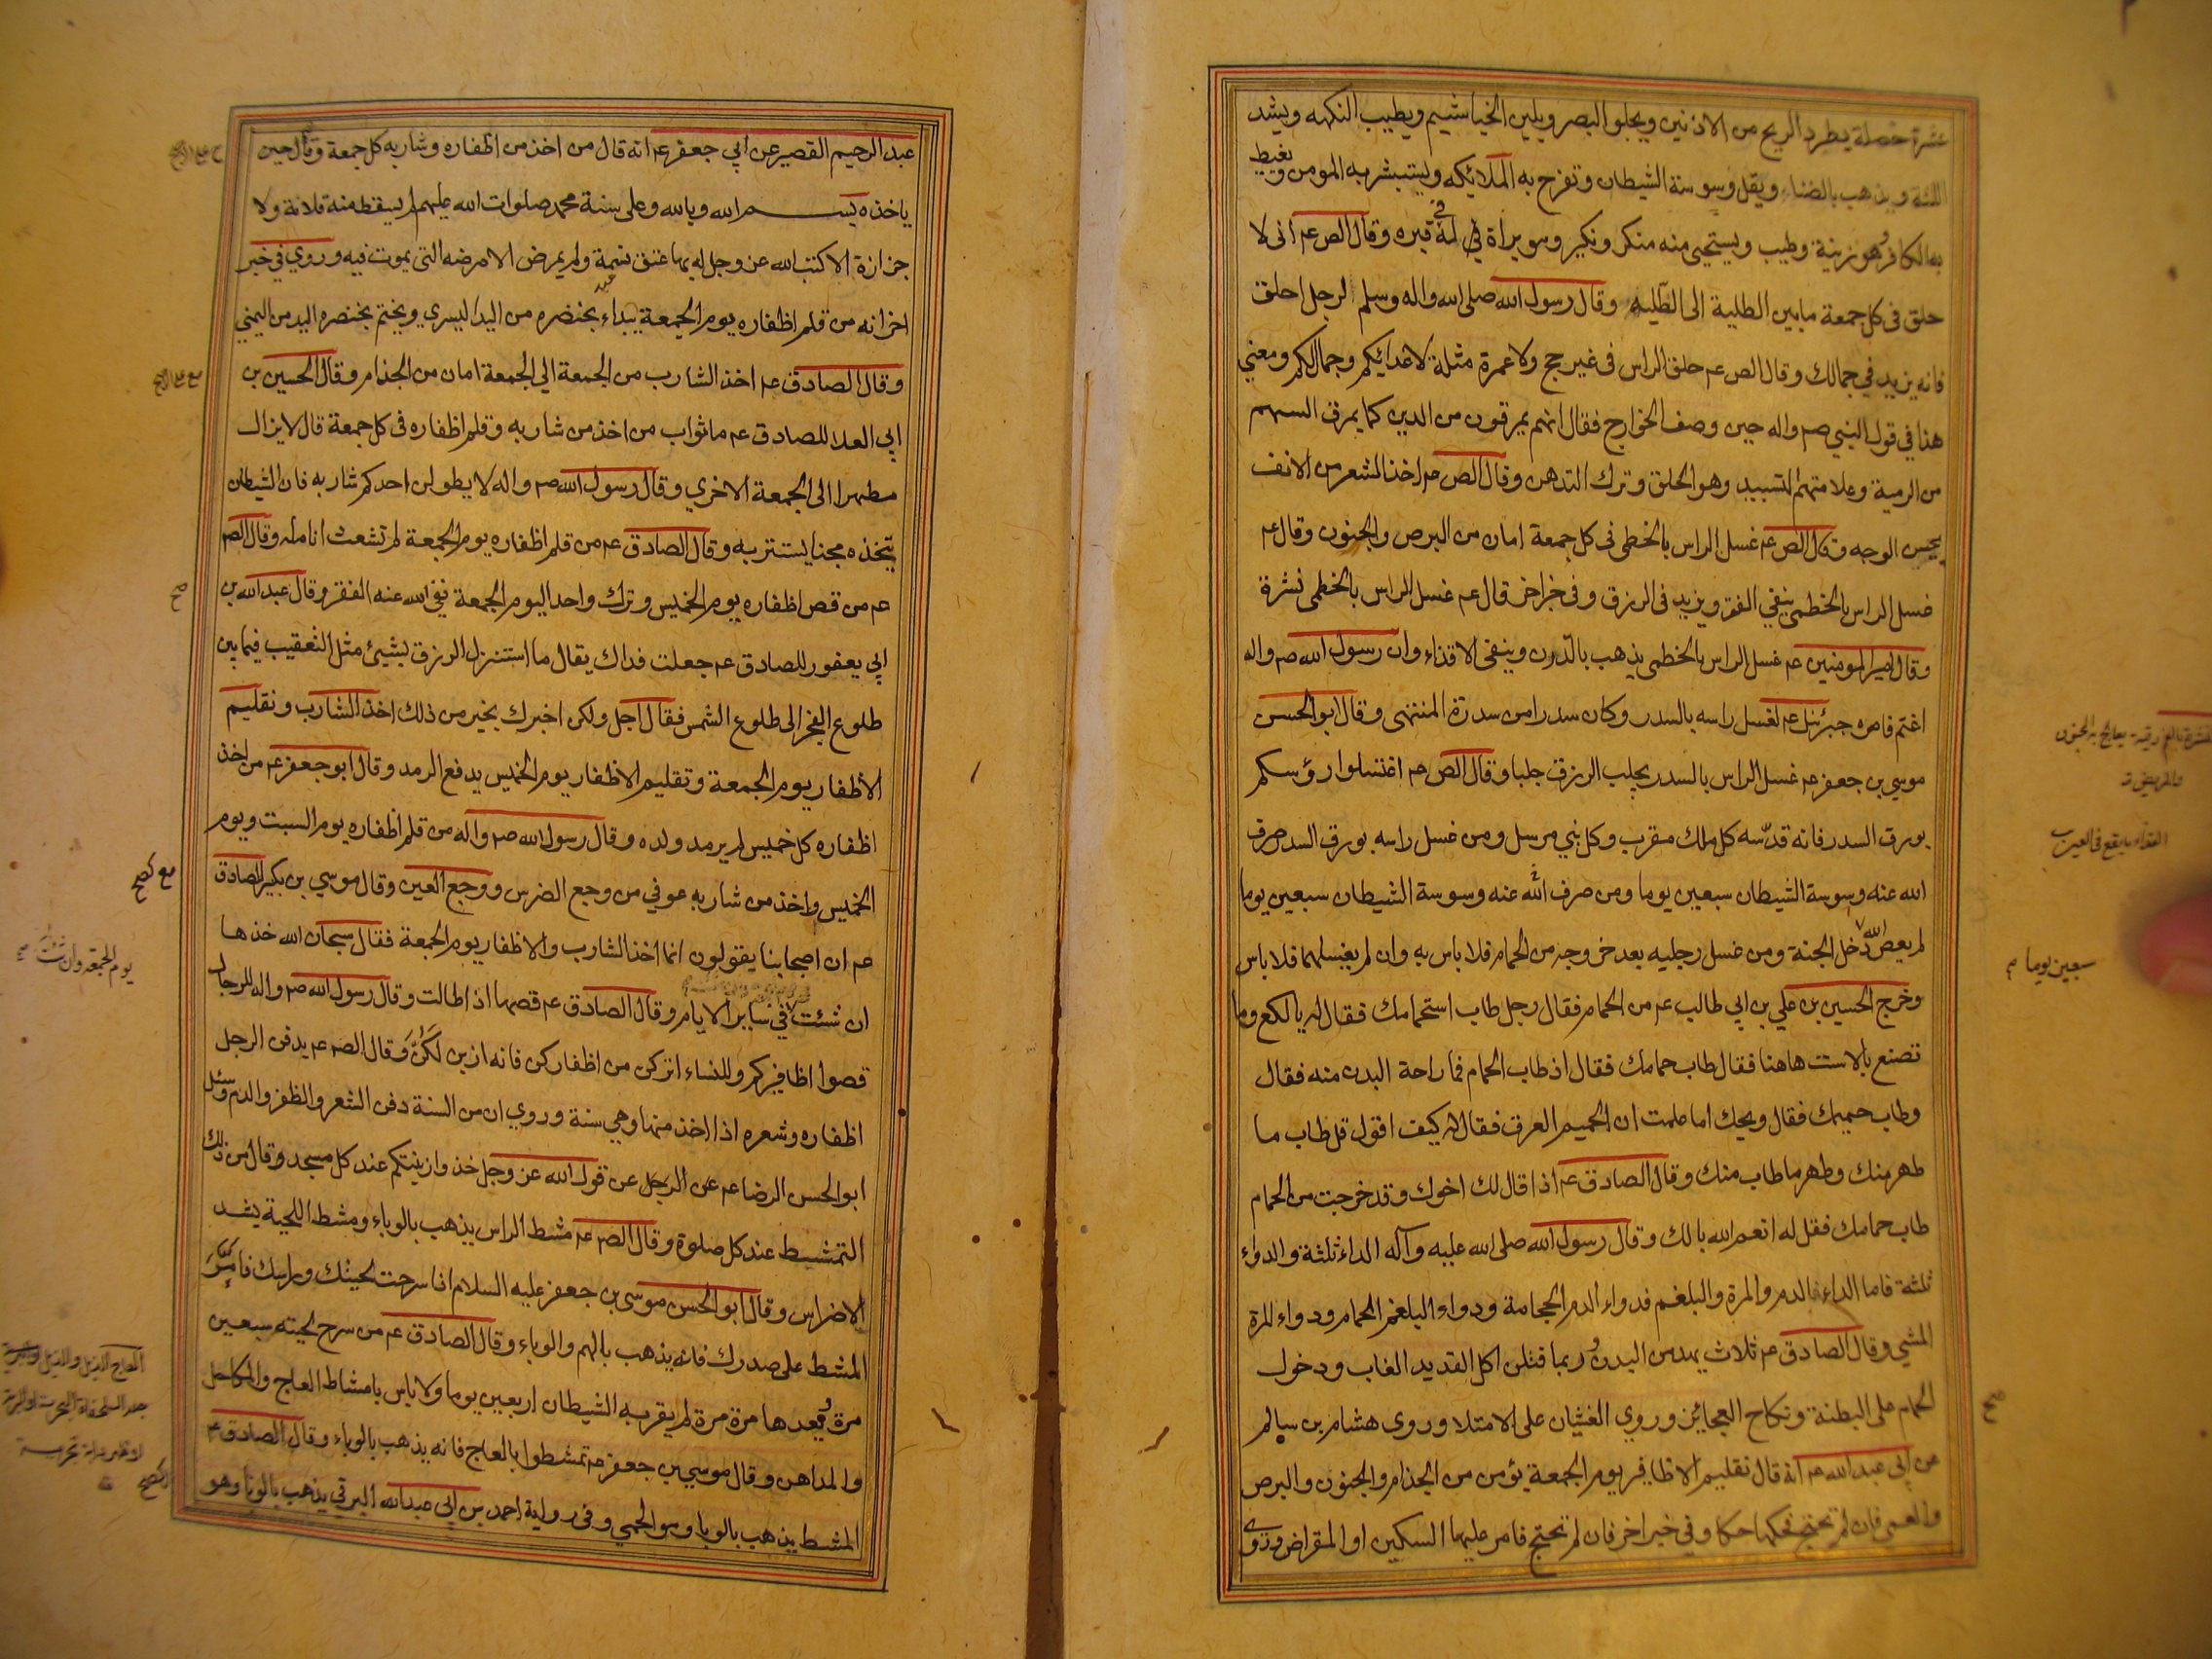 عشرة خصلة يطرد الريح من الاذنين ويجلو البصر ويلين الخياشيم ويطيب النكهه ويشد
اللثة ويذهب بالضناء ويقل وسوسة الشيطان وتفرح به الملائكه ويستبشر به المومن ويغيظ
به الكافر وهو زينة وطيب ويستحيى منه منكر ونكير وهو براة له في قبره وقال الص عم انى لا
حلق في كل جمعة مابين الطلية الى الطليه وقال رسول الله صلى الله واله وسلم لرجل احلق
فانه يزيد في جمالك وقال الص عم حلق الراس فى غير حج ولا عمرة مثلة لاعدائكم وجمال لكم ومعني
هذا في قول النبي صم واله حين وصف الخوارج فقال انهم يمرقون من الدين كما يمرق السهم
من الرمية وعلامتهم التسبيد وهو الحلق وترك التدهن وقال الص عم اخذ الشعر من الانف
يحسن الوجه وقال الص عم غسل الراس بالخطمى فى كل جمعة امان من البرص والجنون وقال عم
غسل الراس بالخطمى ينفي الفقر ويزيد فى الرزق وفى خبر اخر قال عم غسل الراس بالخطمى نشرة
وقال امير المومنين عم غسل الراس بالخطمى يذهب بالدرن وينفى الاقذاء وان رسول الله صم واله
اغتم فامره جبرئيل عم لغسل راسه بالسدر وكان سدرا من سدرة المنتهى وقال ابو الحسن
موسي بن جعفر عم غسل الراس بالسدر يجلب الرزق جلبا وقال الص عم اغتسلوا رؤسكم
بورق السدر فانه قدسه كل ملك مقرب وكل نبي مرسل ومن غسل راسه بورق السدر صرف
الله عنه وسوسة الشيطان سبعين يوما ومن صرف الله عنه وسوسة الشيطان سبعين يوما
لم يعص الله دخل الجنة ومن غسل رجليه بعد خروجه من الحمام فلا باس به وان لم يغسلهما فلا باس
وخرج الحسين بن علي بن ابي طالب عم من الحمام فقال رجل طاب استحمامك فقال له يا لكع وما
تصنع بالاست هاهنا فقال طاب حمامك فقال اذ طاب الحمام فما راحة البدن منه فقال
وطاب حميمك فقال ويحك اما علمت ان الحميم العرق فقال له كيف اقول قل طاب ما
طهر منك وطهر ما طاب منك وقال الصادق عم اذا قال لك اخوك وقد خرجت من الحمام
طاب حمامك فقل له انعم الله بالك وقال رسول الله صلى الله عليه وآله الداء ثلثة والدواء
ثلثة فاما الداء فالدم والمرة والبلغم فدواء الدم الحجامة ودواء البلغم الحمام ودواء المرة
المشي وقال الصادق عم ثلاث يهدمن البدن وربما قتلن اكل القديد الغاب ودخول
الحمام على البطنة ونكاح العجايز وروي الغشيان على الامتلا وروى هشام بن سالم
عن ابي عبد الله عم انه قال تقليم الاظافير يوم الجمعة يؤمن من الجذام والجنون والبرص
والعمى فان لم تحتج فحكها حكا وفي خبر اخر فان لم تحتج فامر عليها السكين او المقراض وروى
سبعين يوما
صح
عبد الرحيم القصير عن ابي جعفر عم انه قال من اخذ من اظفاره وشاربه كل جمعة وقال حين
ياخذه بسم الله وبالله وعلى سنة محمد صلوات الله عليهم لم يسقط منه قلامة ولا
جزازة الا كتب الله عز وجل له بها عتق نسمة ولم يمرض الا مرضه التى يموت فيه وروي في خبر
اخر انه من قلم اظفاره يوم الجمعة يبداء بخنصره من اليد اليسري ويختم بخنصره اليد من اليمني
وقال الصادق عم اخذ الشارب من الجمعة الي الجمعة امان من الجذام وقال الحسين بن
ابي العلا للصادق عم ما ثواب من اخذ من شاربه وقلم اظفاره فى كل جمعة قال لا يزال
مطهرا الى الجمعة الاخري وقال رسول الله صم واله لا يطولن احدكم شاربه فان الشيطان
يتخذه مجنا يستتر به وقال الصادق عم من قلم اظفاره يوم الجمعة لم تشعث انامله وقال الص
عم من قص اظفاره يوم الخميس وترك واحدا ليوم الجمعة نفى الله عنه الفقر وقال عبد الله بن
ابي يعفور للصادق عم جعلت فداك يقال ما استنزل الرزق بشيئ مثل التعقيب فيما بين
طلوع الفجر الى طلوع الشمس فقال اجل ولكن اخبرك بخير من ذلك اخذ الشارب وتقليم
الاظفار يوم الجمعة وتقليم الاظفار يوم الخميس يدفع الرمد وقال ابو جعفر عم من اخذ
اظفاره كل خميس لم يرمد ولده وقال رسول الله صم واله من قلم اظفاره يوم السبت ويوم
الخميس واخذ من شاربه عوفي من وجع الضرس ووجع العين وقال موسي بن بكير للصادق
عم ان اصحابنا يقولون انما اخذ الشارب والاظفار يوم الجمعة فقال سبحان الله خذها
ان شئت في ساير الايام وقال الصادق عم قصها اذا طالت وقال رسول الله صم واله للرجال
قصوا اظافيركم وللنساء اتركن من اظفاركن فانه ازين لكن وقال الص عم يدفن الرجل
اظفاره وشعره اذا اخذ منها وهي سنة وروي ان من السنة دفن الشعر والظفر والدم وسئل
ابو الحسن الرضا عم عن الرجل عن قول الله عز وجل خذوا زينتكم عند كل مسجد وقال من ذلك
التمشيط عند كل صلوة وقال الص عم مشط الراس يذهب بالوباء ومشط اللحية يشد
الاضراس وقال ابو الحسن موسى بن جعفر عليه السلام اذا سرحت لحيتك وراسك فامر
المشط على صدرك فانه يذهب بالهم والوباء وقال الصادق عم من سرح لحيته سبعين
مرة وعدها مرة مرة لم يقربه الشيطان اربعين يوما ولا باس بامشاط العاج والمكاحل
والمداهن وقال موسي بن جعفر عم تمشطوا بالعاج فانه يذهب بالوباء وقال الصادق عم
المشط يذهب بالوبا وهو الحمى وفى رواية احمد بن ابي عبد الله البرقي يذهب بالونا وهو
يوم الجمعة وان شئت